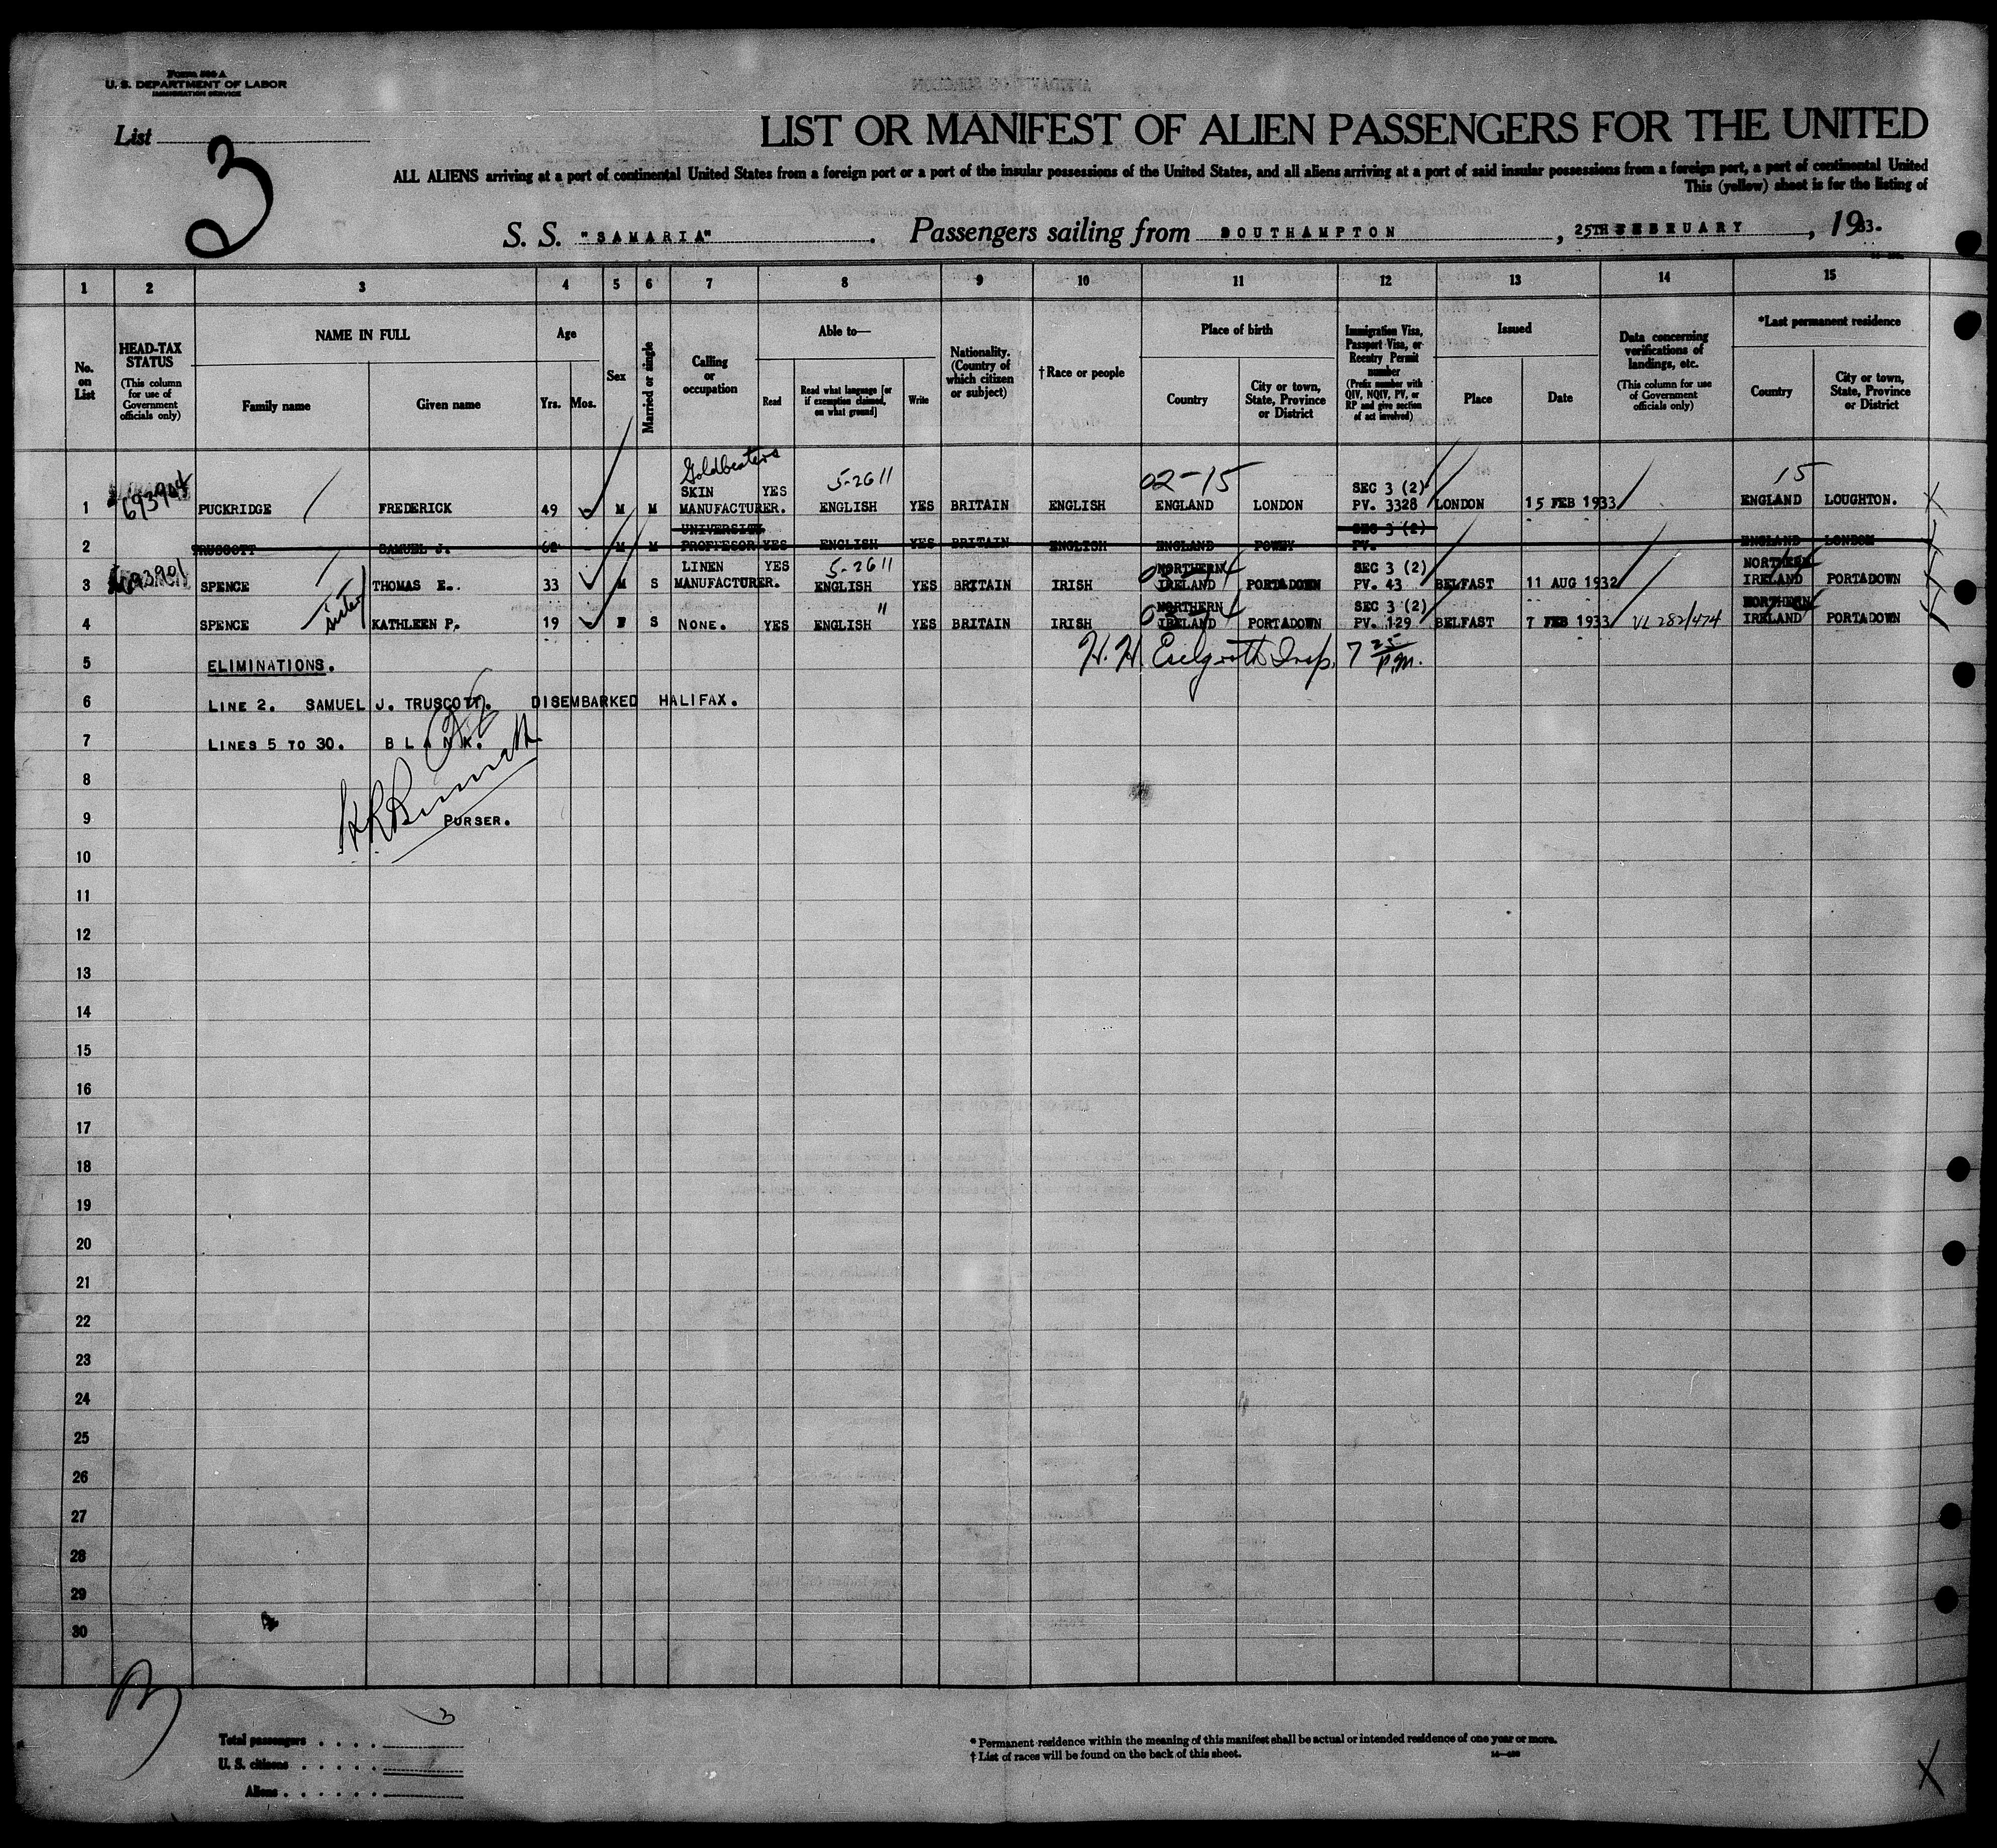 Form 500 A
U. S. DEPARTMENT OF LABOR
IMMIGRATION SERVICE
List 3
LIST OR MANIFEST OF ALIEN PASSENGERS FOR THE UNITED
ALL ALIENS arriving at a port of continental United States from a foreign port or a port of the insular possessions of the United States, and all aliens arriving at a port of said insular possessions from a foreign port, a part of continental United
This (yellow) sheet is for the listing of
S. S. "SAMARIA" . Passengers sailing from SOUTHAMPTON , 25TH FEBRUARY , 1933.
1 2 3 4 5 6 7 8 9 10 11 12 13 14 15
No. on List
HEAD-TAX STATUS
(This column for use of Government officials only)
NAME IN FULL
Family name
Given name
Age
Yrs. Mos.
Sex
Married or single
Calling or occupation
Able to—
Read
Read what language [or if exemption claimed, on what ground]
Write
Nationality. (Country of which citizen or subject)
†Race or people
Place of birth
Country
City or town, State, Province or District
Immigration Visa, Passport Visa, or Reentry Permit number
(Prefix number with QIV, NQIV, PV, or RP and give section of act involved)
Issued
Place
Date
Data concerning verifications of landings, etc.
(This column for use of Government officials only)
*Last permanent residence
Country
City or town, State, Province or District
Goldbeaters 5-2611 02-15 15
SKIN YES SEC 3 (2)
1 693904 PUCKRIDGE FREDERICK 49 M M MANUFACTURER. ENGLISH YES BRITAIN ENGLISH ENGLAND LONDON PV. 3328 LONDON 15 FEB 1933 ENGLAND LOUGHTON.
UNIVERSITY SEC 3 (2)
2 TRUSCOTT SAMUEL J. 62 M M PROFFESOR YES ENGLISH YES BRITAIN ENGLISH ENGLAND FOWEY PV. ENGLAND LONDON
LINEN YES 5-2611 NORTHERN SEC 3 (2) NORTHERN
3 693901 SPENCE THOMAS E. 33 M S MANUFACTURER. ENGLISH YES BRITAIN IRISH IRELAND PORTADOWN PV. 43 BELFAST 11 AUG 1932 IRELAND PORTADOWN
sister " NORTHERN SEC 3 (2) NORTHERN
4 SPENCE KATHLEEN P. 19 F S NONE. YES ENGLISH YES BRITAIN IRISH IRELAND PORTADOWN PV. 129 BELFAST 7 FEB 1933 VL 282/474 IRELAND PORTADOWN
5 ELIMINATIONS. H. H. Insp. 7 25 P.M.
6 LINE 2. SAMUEL J. TRUSCOTT. DISEMBARKED HALIFAX.
7 LINES 5 TO 30. BLANK.
8
9 PURSER.
10
11
12
13
14
15
16
17
18
19
20
21
22
23
24
25
26
27
28
29
30
3
Total passengers . . . .
U. S. citizens . . . . .
Aliens . . . . . .
* Permanent residence within the meaning of this manifest shall be actual or intended residence of one year or more.
† List of races will be found on the back of this sheet.
X